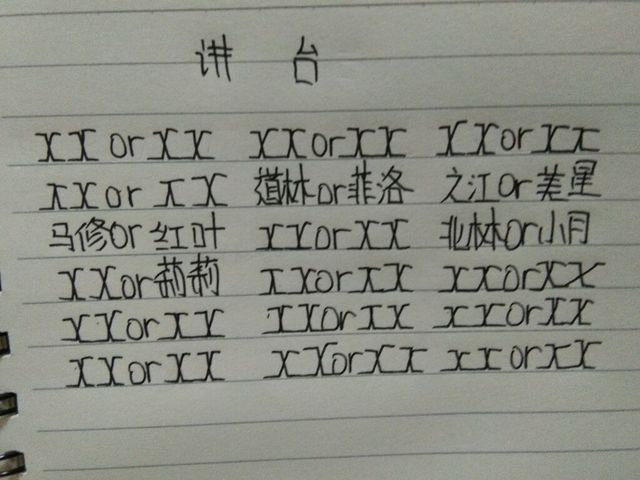 讲 台
XX or XX XX or XX XX or XX
XX or XX 道林or菲洛 之江or美星
马修or红叶 XX or XX 北林or小月
XX or莉莉 XX or XX XX or XX
XX or XX XX or XX XX or XX
XX or XX XX or XX XX or XX